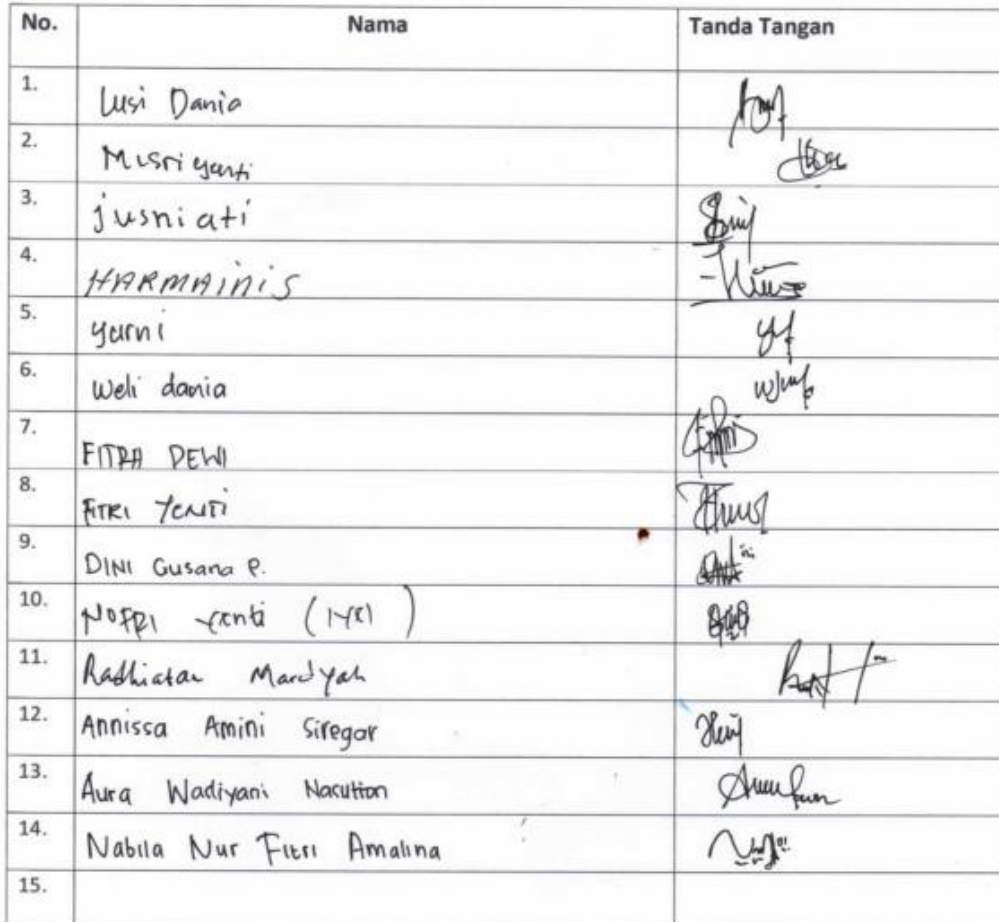 No. Nama Tanda Tangan
1. Lusi Dania
2. Misriyanti
3. jusniati
4. HARMAINIS
5. yarni
6. weli dania
7. FITRA DEWI
8. FITRI YENTI
9. DINI Gusana P.
10. NOFRI yenti
11. Radhiatan Mardyah
12. Annissa Amini Siregar
13. Aura Wadiyani Nasution
14. Nabila Nur Fitri Amalina
15.